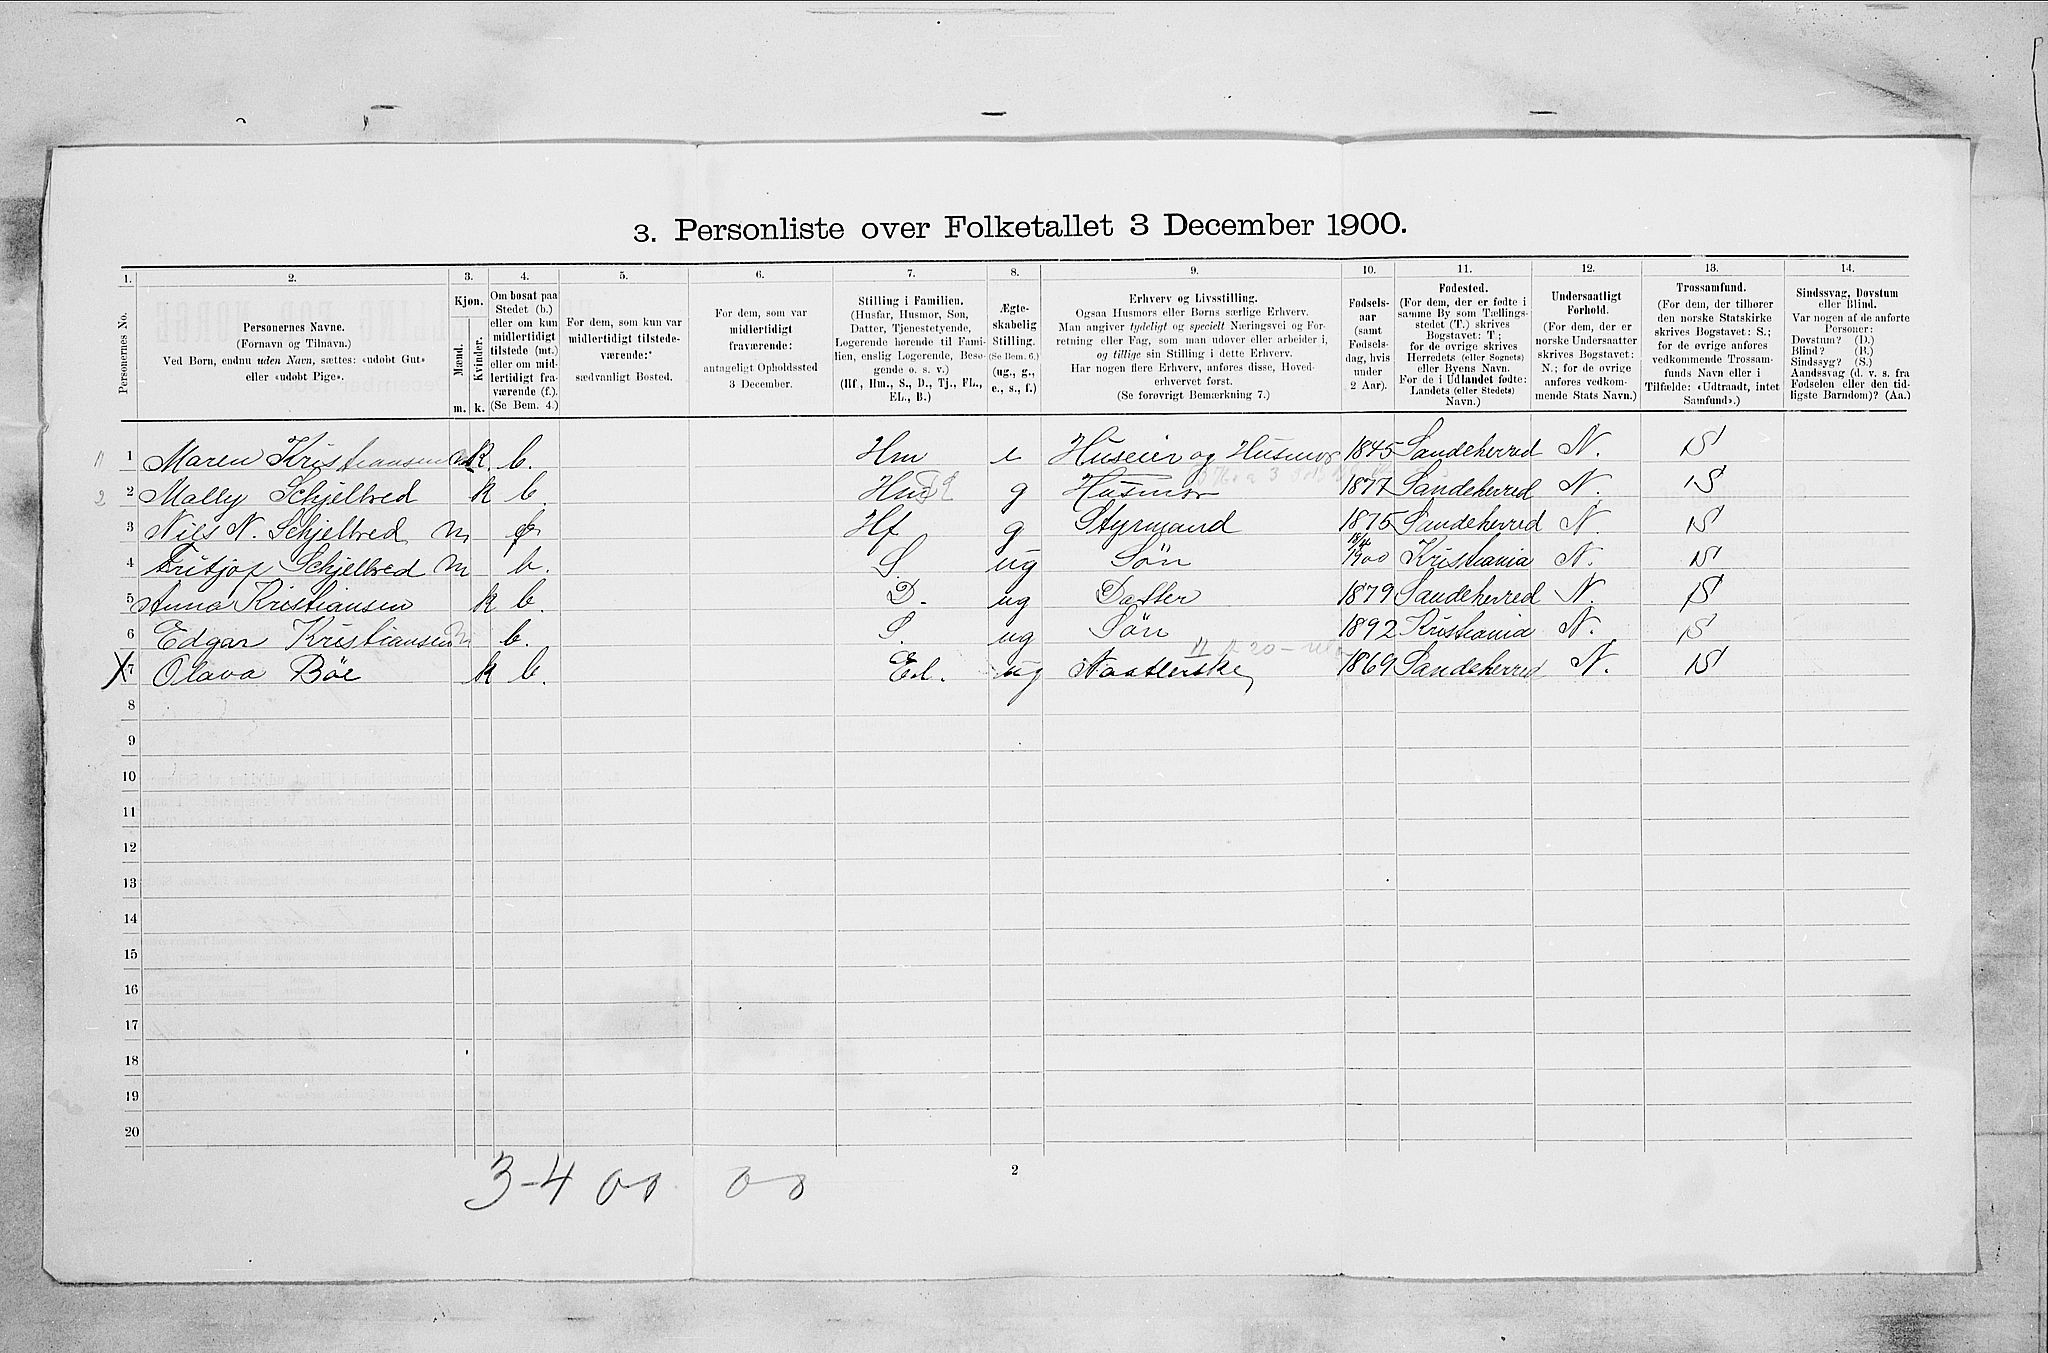 3. Personliste over Folketallet 3 December 1900.
1.
Personernes No.
2.
Personernes Navne.
(Fornavn og Tilnavn.)
Ved Børn, endnu uden Navn, sættes: «udøbt Gut»
eller «udøbt Pige».
3.
Kjøn.
Mænd.
Kvinder.
m. k.
4.
Om bosat paa
Stedet (b.)
eller om kun
midlertidigt
tilstede (mt.)
eller om mid-
lertidigt fra-
værende (f.).
(Se Bem. 4.)
5.
For dem, som kun var
midlertidigt tilstede-
værende:*
sædvanligt Bosted.
6.
For dem, som var
midlertidigt
fraværende:
antageligt Opholdssted
3 December.
7.
Stilling i Familien.
(Husfar, Husmor, Søn,
Datter, Tjenestetyende,
Logerende hørende til Fami-
lien, enslig Logerende, Besø-
gende o. s. v.)
(Hf., Hm., S., D., Tj., FL.,
EL., B.)
8.
Ægte-
skabelig
Stilling.
(Se Bem. 6.)
(ug., g.,
e., s., f.)
9.
Erhverv og Livsstilling.
Ogsaa Husmors eller Børns særlige Erhverv.
Man angiver tydeligt og specielt Næringsvei og For-
retning eller Fag, som man udøver eller arbeider i,
og tillige sin Stilling i dette Erhverv.
Har nogen flere Erhverv, anføres disse, Hoved-
erhvervet først.
(Se forøvrigt Bemærkning 7.)
10.
Fødsels-
aar
(samt
Fødsels-
dag, hvis
under
2 Aar).
11.
Fødested.
(For dem, der er fødte i
samme By som Tællings-
stedet (T.) skrives
Bogstavet: T;
for de øvrige skrives
Herredets (eller Sognets)
eller Byens Navn.
For de i Udlandet fødte:
Landets (eller Stedets)
Navn.)
12.
Undersaatligt
Forhold.
(For dem, der er
norske Undersaatter
skrives Bogstavet:
N.; for de øvrige
anføres vedkom-
mende Stats Navn.)
13.
Trossamfund.
(For dem, der tilhører
den norske Statskirke
skrives Bogstavet: S.;
for de øvrige anføres
vedkommende Trossam-
funds Navn eller i
Tilfælde: «Udtraadt, intet
Samfund».)
14.
Sindssvag, Døvstum
eller Blind.
Var nogen af de anførte
Personer:
Døvstum? (D.)
Blind? (B.)
Sindssyg? (S.)
Aandssvag (d. v. s. fra
Fødselen eller den tid-
ligste Barndom)? (Aa.)
1 Maren Kristiansen k. b. Hm e Huseier og Husmor 1845 Sandeherred N. S
2 Mally Schjelbred k b. Hm g Husmor 1877 Sandeherred N. S
3 Nils N. Schjelbred m Hf g Styrmand 1875 Sandeherred N. S
4 Fritjof Schjelbred m b. S. ug Søn 1900 Kristiania N. S
5 Anna Kristiansen k b. D. ug Datter 1879 Sandeherred N. S
6 Edgar Kristiansen m b. S. ug Søn 1892 Kristiania N. S
X 7 Olava Böe k b. El. ug 1869 Sandeherred N. S
8
9
10
11
12
13
14
15
16
17
18
19
20
3-4 00 00
2